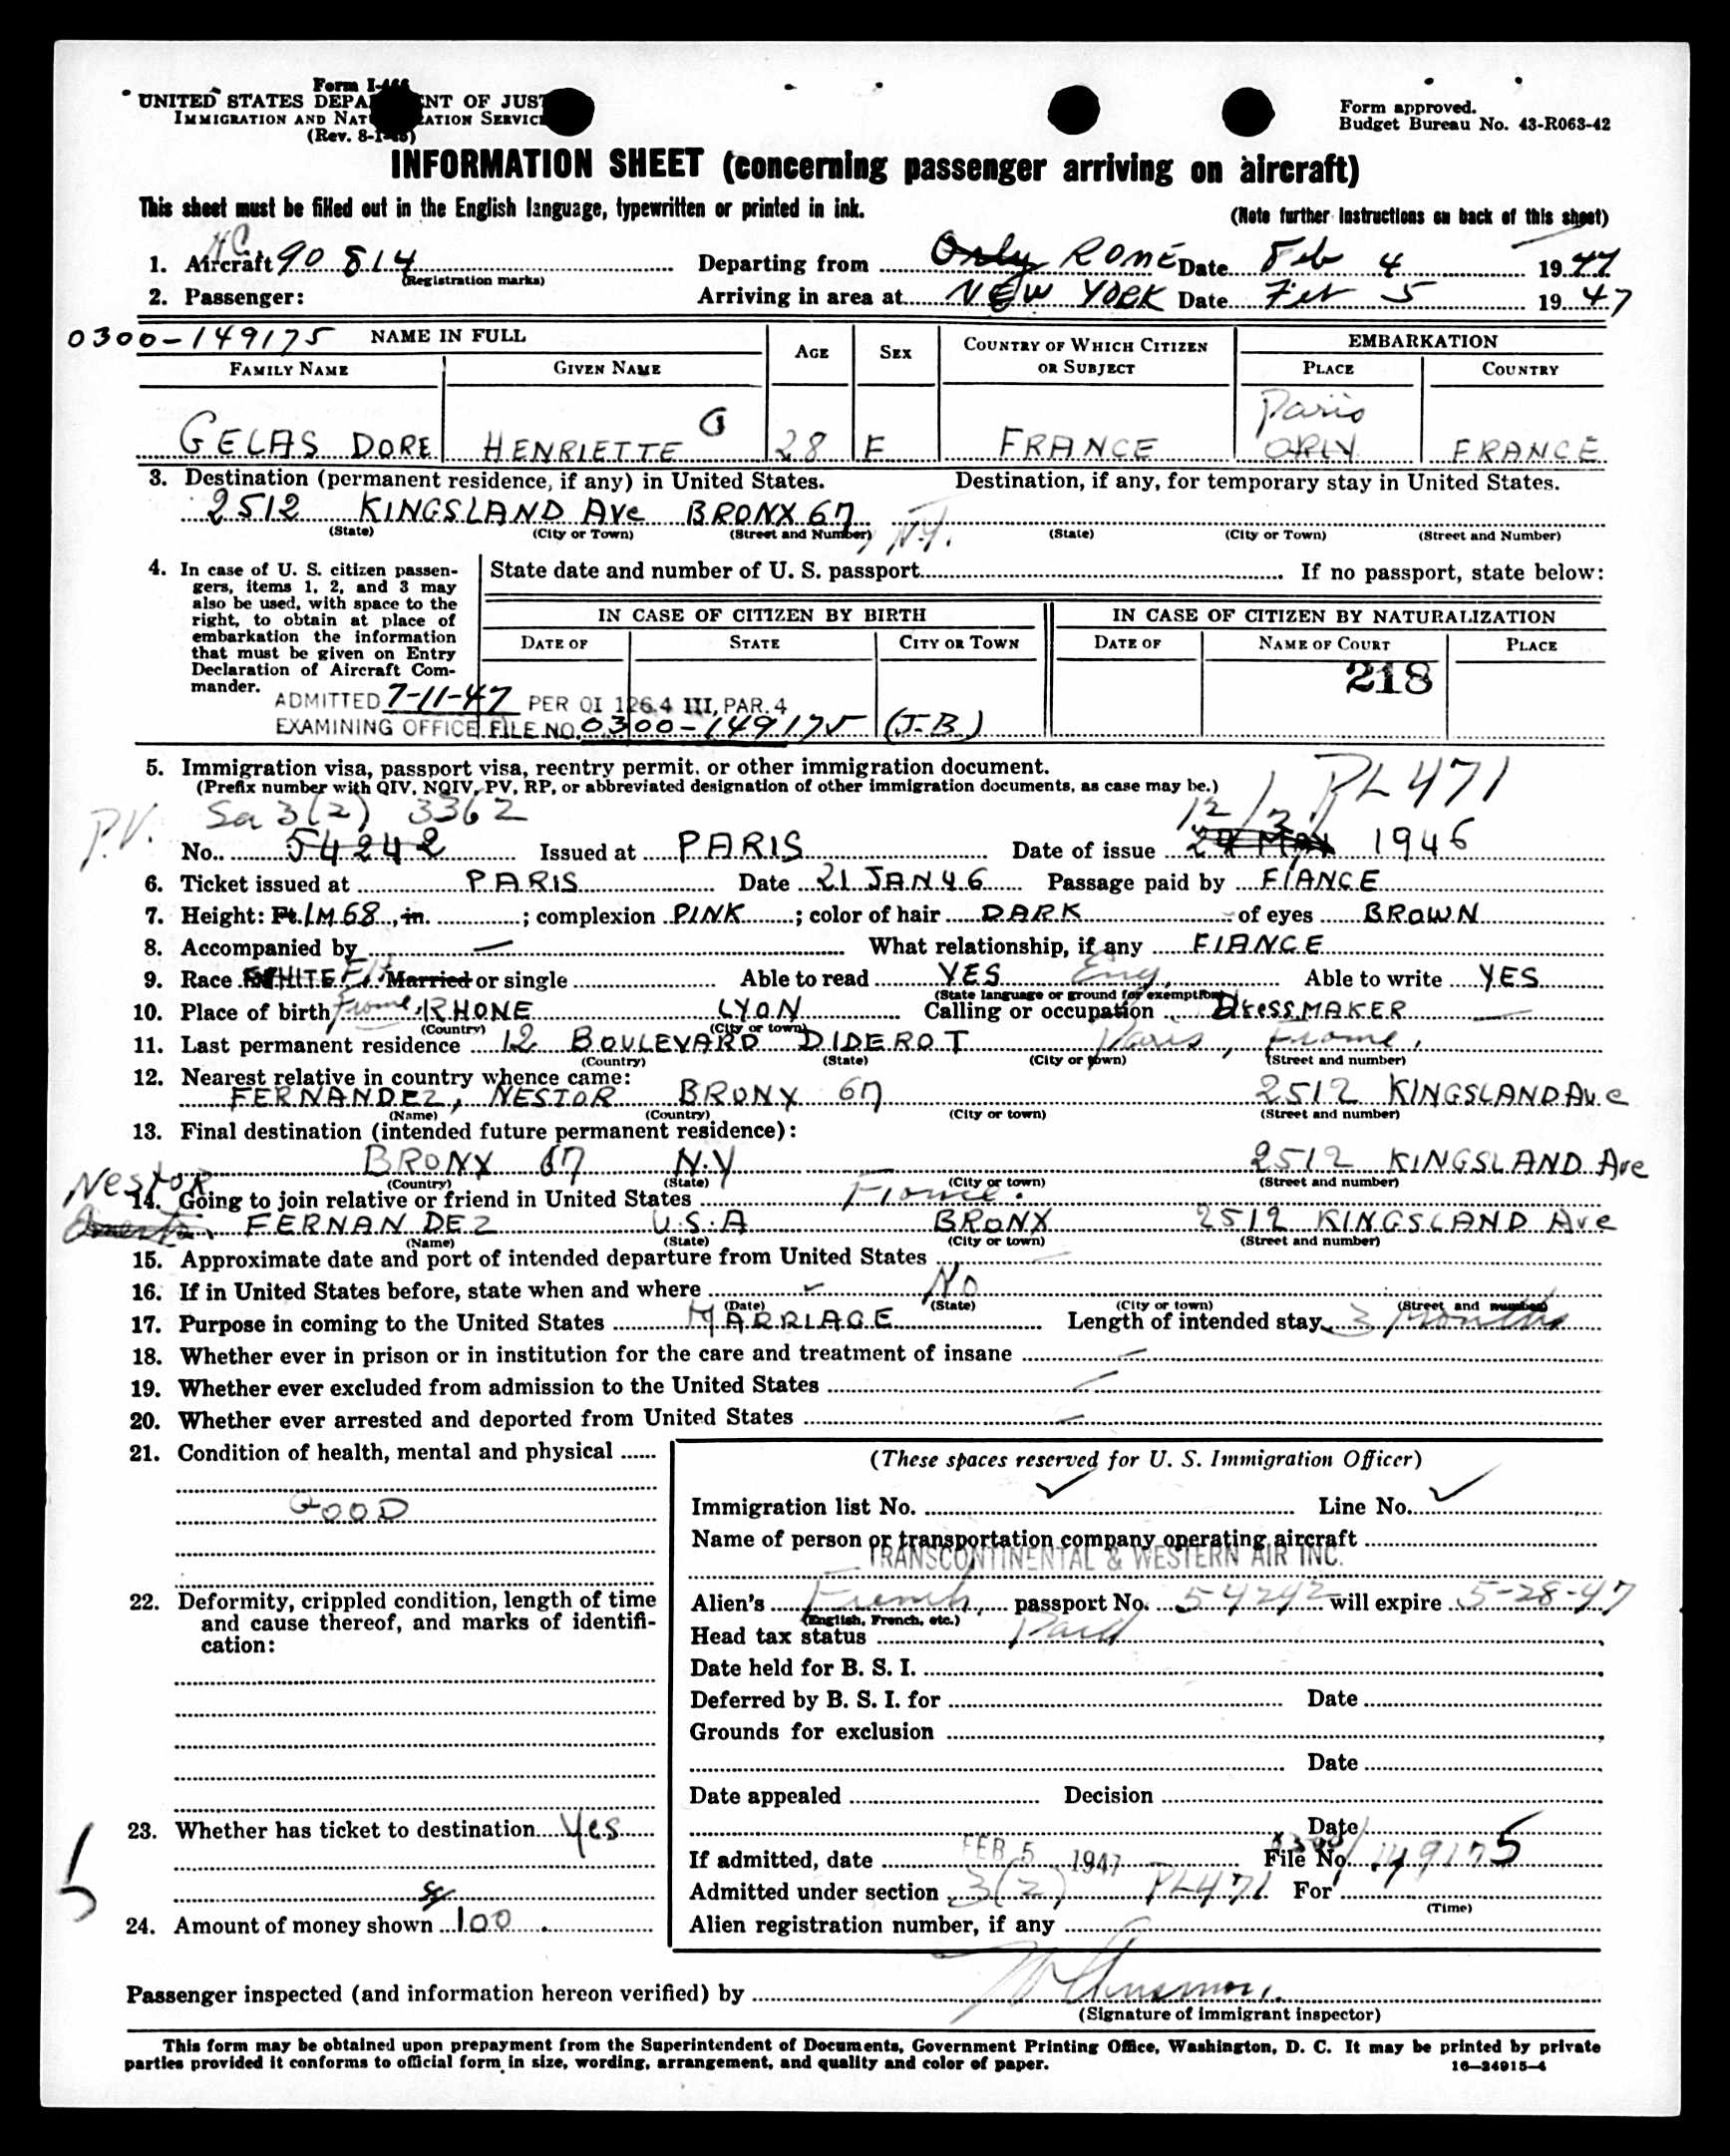 Form I-466
UNITED STATES DEPARTMENT OF JUSTICE
IMMIGRATION AND NATURALIZATION SERVICE
(Rev. 8-1-45)
Form approved.
Budget Bureau No. 43-R063-42
INFORMATION SHEET (concerning passenger arriving on aircraft)
This sheet must be filled out in the English language, typewritten or printed in ink.
(Note further instructions on back of this sheet)
1. Aircraft NC 90814 (Registration marks) Departing from Orly ROME Date Feb 4 1947
2. Passenger: Arriving in area at NEW YORK Date Feb 5 1947
0300-149175 NAME IN FULL AGE SEX COUNTRY OF WHICH CITIZEN OR SUBJECT EMBARKATION
FAMILY NAME GIVEN NAME PLACE COUNTRY
Paris
GELAS DORE HENRIETTE G 28 F FRANCE ORLY FRANCE
3. Destination (permanent residence, if any) in United States. Destination, if any, for temporary stay in United States.
2512 KINGSLAND Ave BRONX 67, N.Y.
(State) (City or Town) (Street and Number) (State) (City or Town) (Street and Number)
4. In case of U. S. citizen passengers, items 1, 2, and 3 may also be used, with space to the right, to obtain at place of embarkation the information that must be given on Entry Declaration of Aircraft Commander.
State date and number of U. S. passport If no passport, state below:
IN CASE OF CITIZEN BY BIRTH IN CASE OF CITIZEN BY NATURALIZATION
DATE OF STATE CITY OR TOWN DATE OF NAME OF COURT PLACE
218
ADMITTED 7-11-47 PER OI 126.4 III, PAR. 4
EXAMINING OFFICE FILE NO. 0300-149175 (J-B)
5. Immigration visa, passport visa, reentry permit, or other immigration document.
(Prefix number with QIV, NQIV, PV, RP, or abbreviated designation of other immigration documents, as case may be.)
PL 471
P.V. Sec 3(2) 3362 12/31
No. 54242 Issued at PARIS Date of issue 29 May 1946
6. Ticket issued at PARIS Date 21 JAN 46 Passage paid by FIANCE
7. Height: Ft. 1M68, in. ; complexion PINK; color of hair DARK of eyes BROWN
8. Accompanied by — What relationship, if any FIANCE
9. Race WHITE Fr. Married or single Able to read YES Eng. Able to write YES
(State language or ground for exemption)
10. Place of birth France, RHONE LYON Calling or occupation DRESSMAKER
(Country) (City or town)
11. Last permanent residence 12 BOULEVARD DIDEROT Paris, France,
(Country) (State) (City or town) (Street and number)
12. Nearest relative in country whence came:
FERNANDEZ, NESTOR BRONX 67 2512 KINGSLAND Ave
(Name) (Country) (City or town) (Street and number)
13. Final destination (intended future permanent residence):
BRONX 67 N.Y 2512 KINGSLAND Ave
(Country) (State) (City or town) (Street and number)
Nestor
14. Going to join relative or friend in United States Fiance.
FERNANDEZ U.S.A BRONX 2512 KINGSLAND Ave
(Name) (State) (City or town) (Street and number)
15. Approximate date and port of intended departure from United States —
16. If in United States before, state when and where No
(Date) (State) (City or town) (Street and number)
17. Purpose in coming to the United States MARRIAGE Length of intended stay 3 Months
18. Whether ever in prison or in institution for the care and treatment of insane —
19. Whether ever excluded from admission to the United States —
20. Whether ever arrested and deported from United States —
21. Condition of health, mental and physical
GOOD
22. Deformity, crippled condition, length of time and cause thereof, and marks of identification:
23. Whether has ticket to destination Yes
24. Amount of money shown $ 100.
(These spaces reserved for U. S. Immigration Officer)
Immigration list No. ✓ Line No. ✓
Name of person or transportation company operating aircraft
TRANSCONTINENTAL & WESTERN AIR INC.
Alien's French, passport No. 54242 will expire 5-28-47
(English, French, etc.)
Head tax status Paid
Date held for B. S. I.
Deferred by B. S. I. for Date
Grounds for exclusion
Date
Date appealed Decision
Date
If admitted, date FEB 5 1947 File No. 0300/149175
Admitted under section 3(2) PL471 For
(Time)
Alien registration number, if any
Passenger inspected (and information hereon verified) by
(Signature of immigrant inspector)
This form may be obtained upon prepayment from the Superintendent of Documents, Government Printing Office, Washington, D. C. It may be printed by private
parties provided it conforms to official form in size, wording, arrangement, and quality and color of paper.
16—34915-4